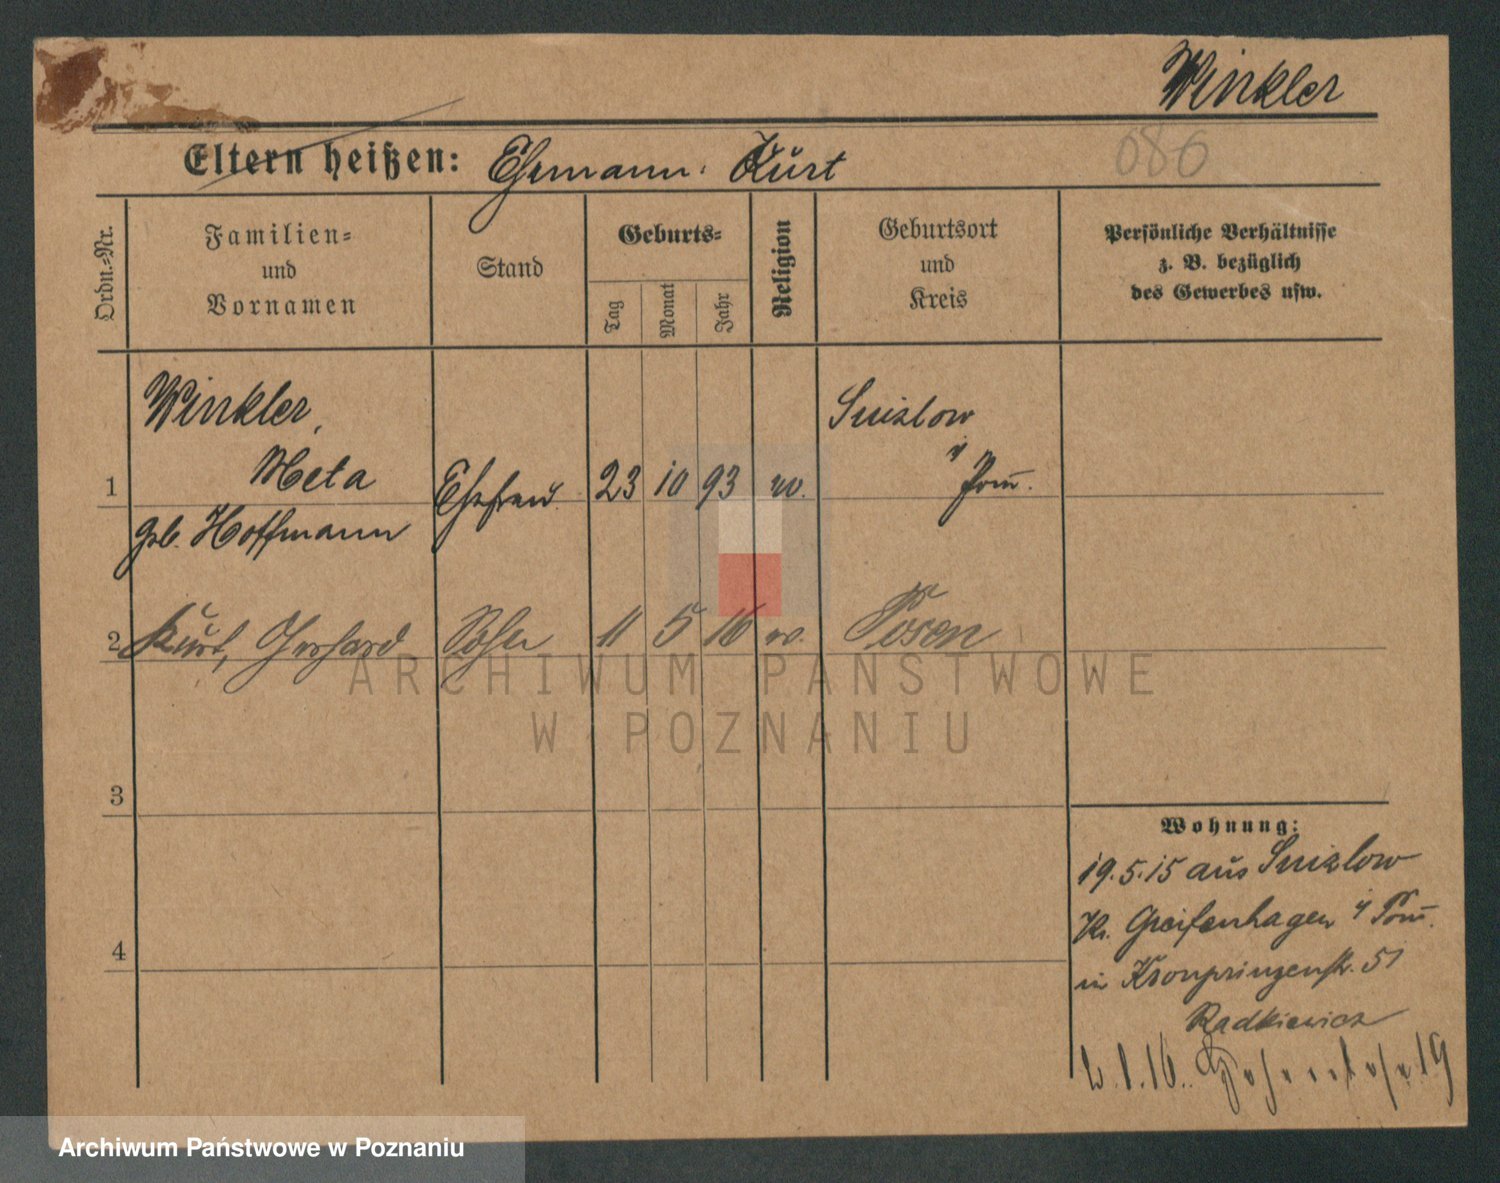 Winkler
086
Eltern heißen: Ehemann: Kurt
Ordn.-Nr.
Familien-
und
Vornamen
Stand
Geburts-
Tag
Monat
Jahr
Religion
Geburtsort
und
Kreis
Persönliche Verhältnisse
z. B. bezüglich
des Gewerbes usw.
1
Winkler,
Meta
geb. Hoffmann
Ehefrau
23 10 93
i/ Pom.
2 Kurt, Gerhard Sohn 11 5 16 Posen
3
4
Wohnung:
19.5.15 aus
Kr. Greifenhagen i/ Pom.
in Kronprinzenstr. 51
Radkiewicz
2.1.16. 19
ARCHIWUM PAŃSTWOWE
W POZNANIU
Archiwum Państwowe w Poznaniu